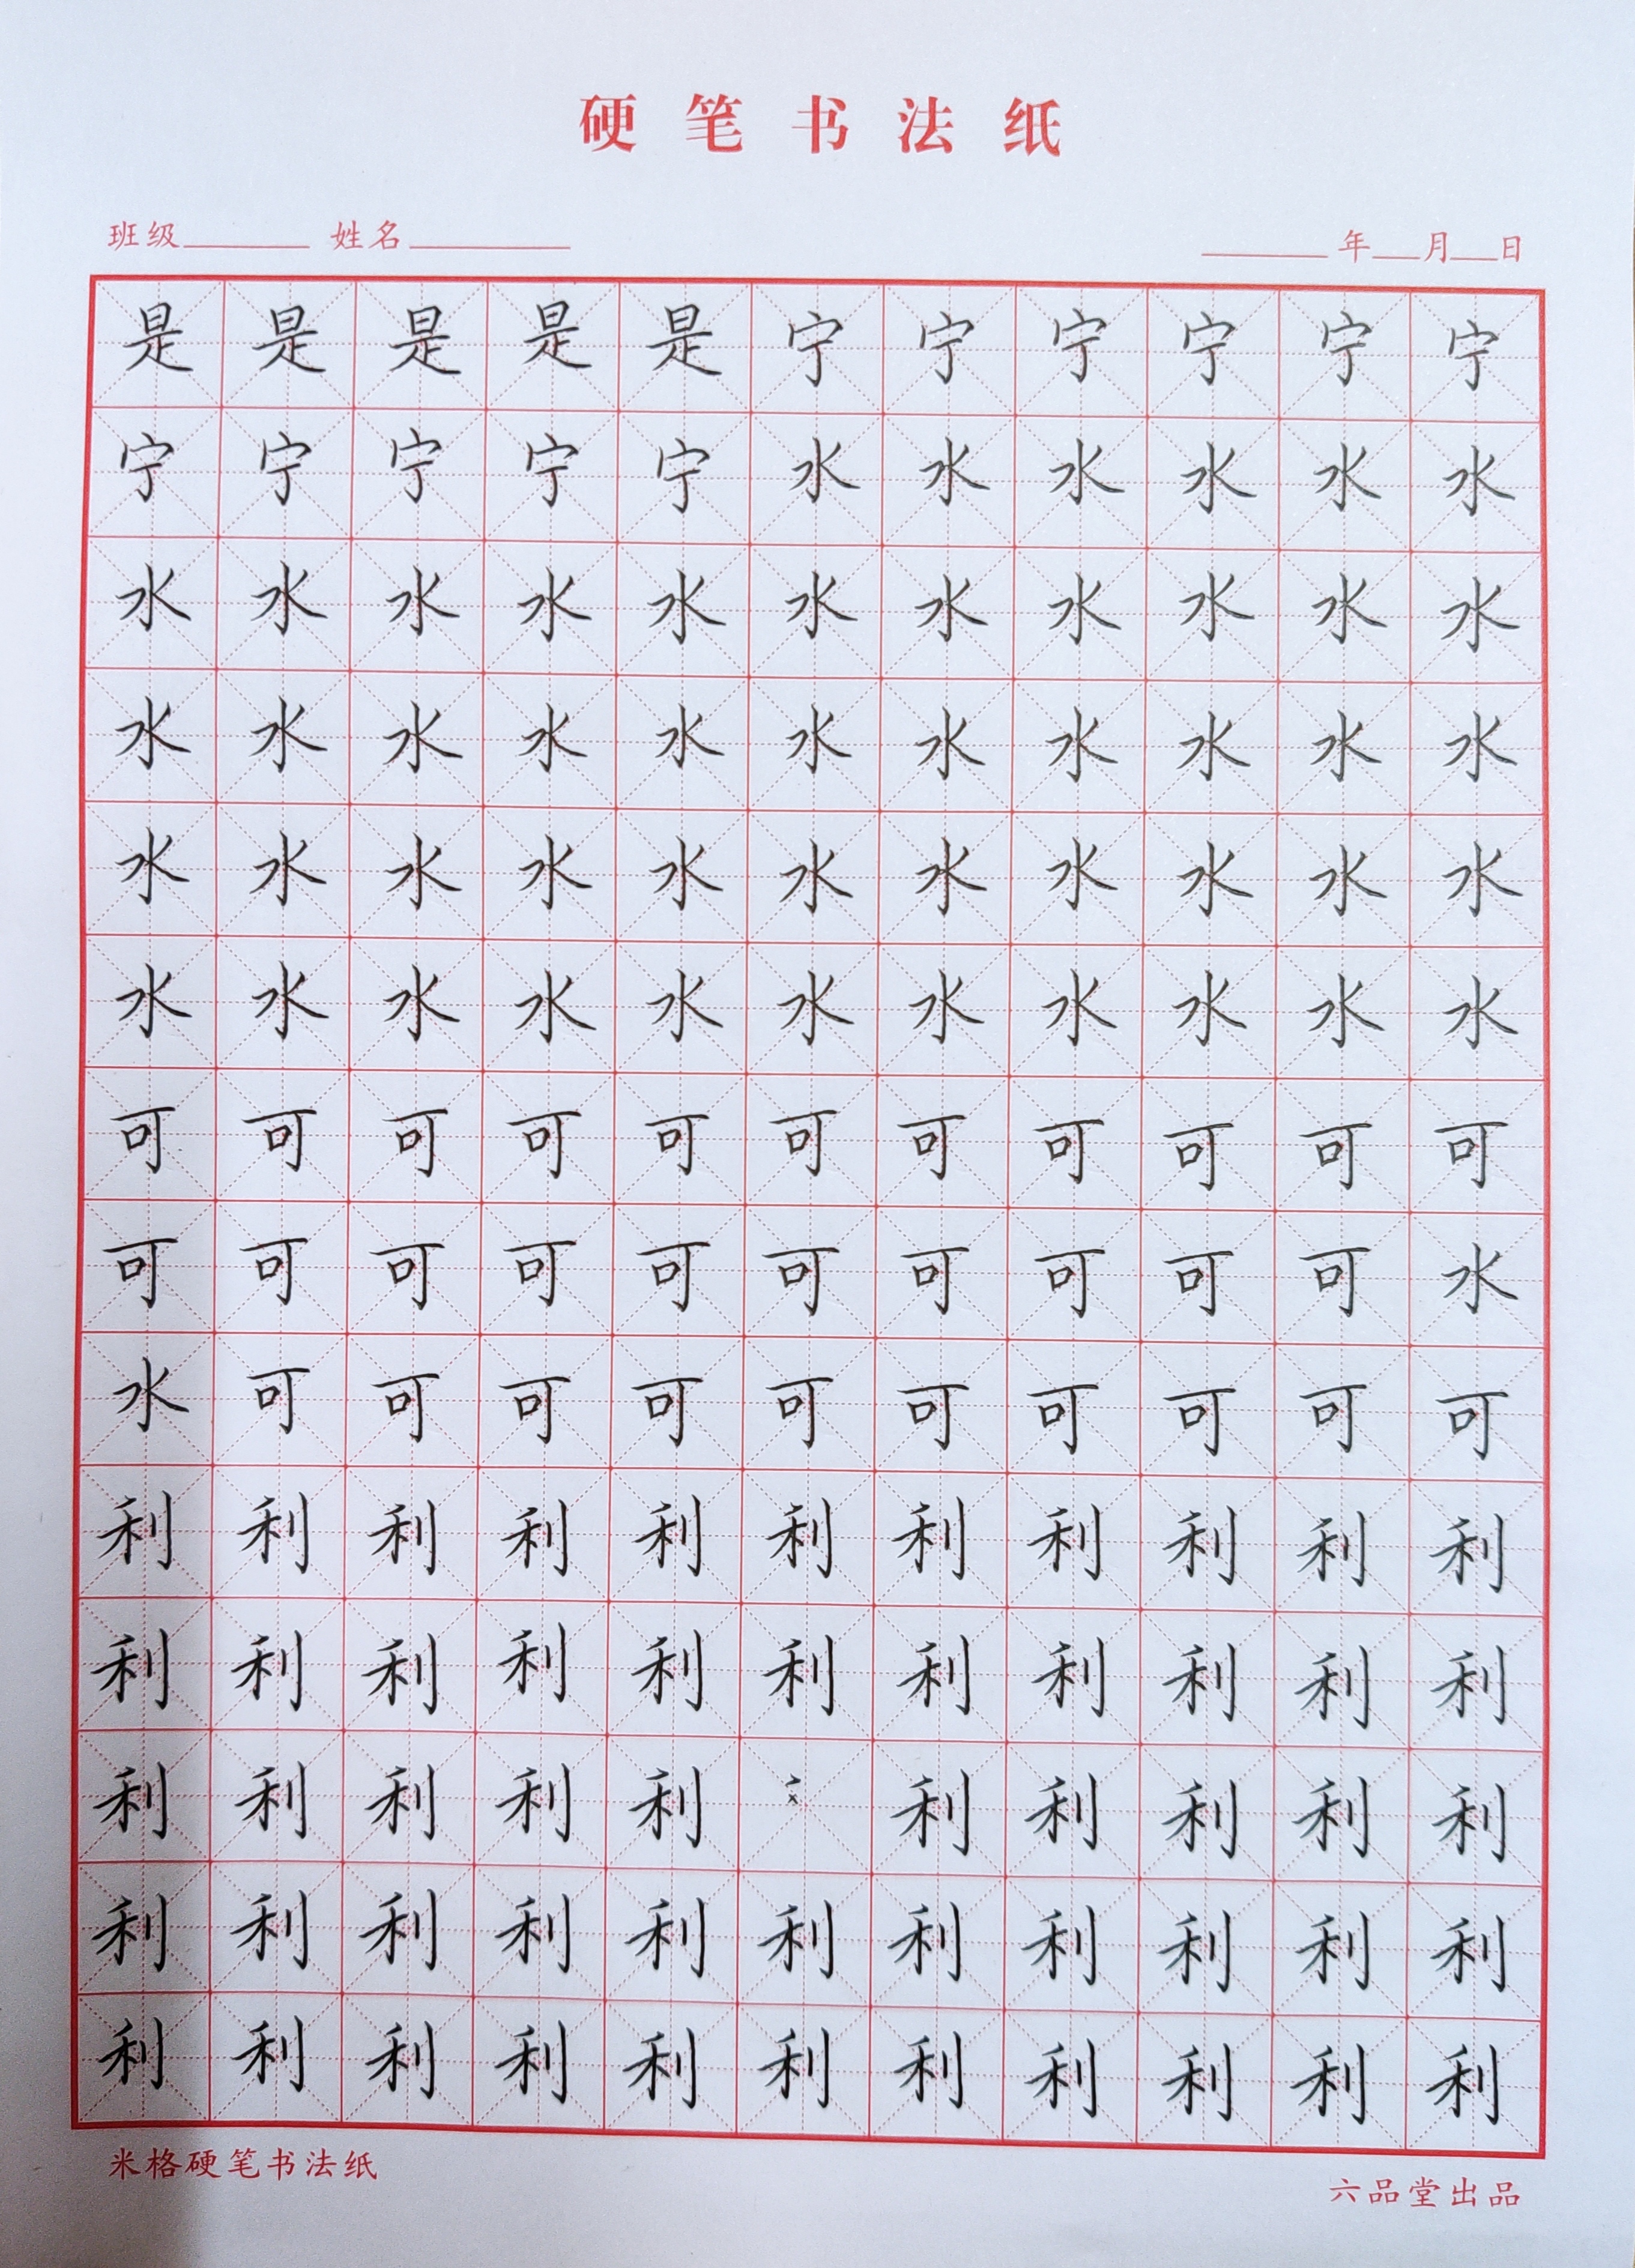 硬笔书法纸
班级 姓名 年 月 日
是是是是是宁宁宁宁宁宁
宁宁宁宁宁水水水水水水
水水水水水水水水水水水
水水水水水水水水水水水
水水水水水水水水水水水
水水水水水水水水水水水
可可可可可可可可可可可
可可可可可可可可可可水
水可可可可可可可可可可
利利利利利利利利利利利
利利利利利利利利利利利
利利利利利利利利利利
利利利利利利利利利利利
利利利利利利利利利利利
米格硬笔书法纸
六品堂出品